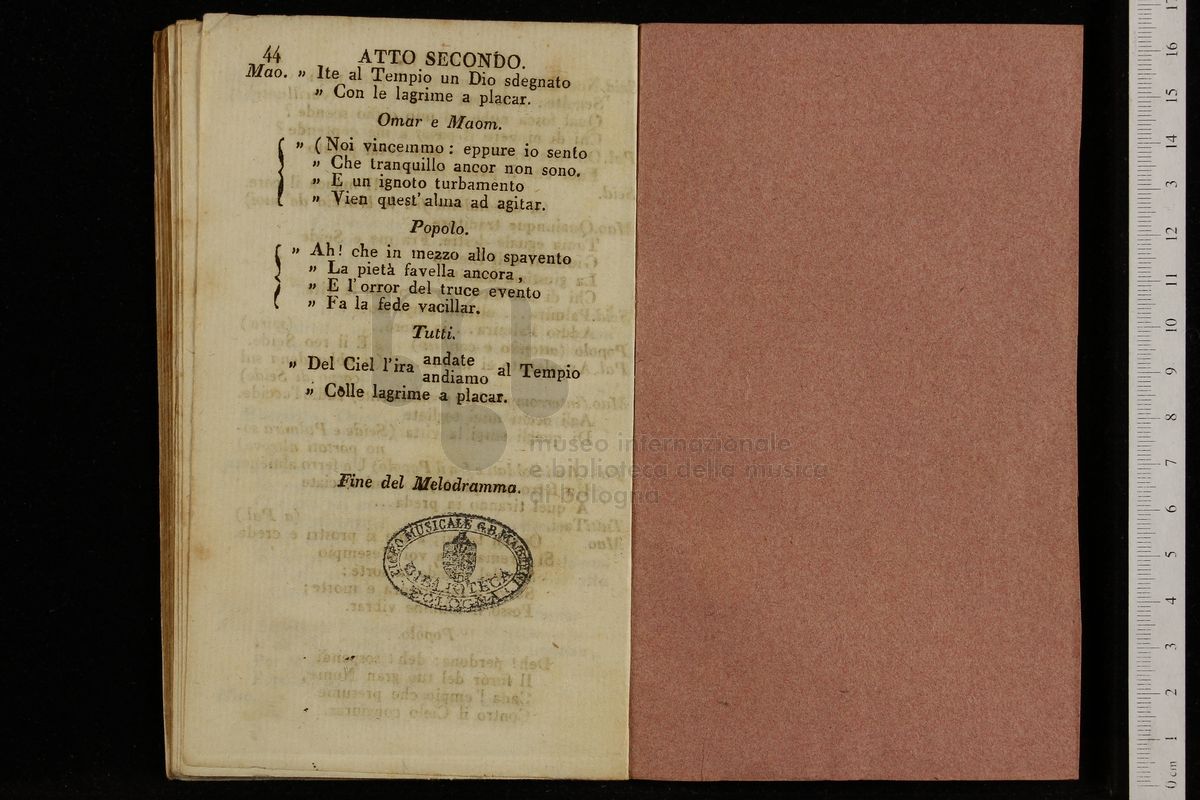 44 ATTO SECONDO.
Mao. „ Ite al Tempio un Dio sdegnato
„ Con le lagrime a placar.
Omar e Maom.
„ (Noi vincemmo: eppure io sento
„ Che tranquillo ancor non sono.
„ E un ignoto turbamento
„ Vien quest' alma ad agitar.
Popolo.
„ Ah! che in mezzo allo spavento
„ La pietà favella ancora,
„ E l'orror del truce evento
„ Fa la fede vacillar.
Tutti.
„ Del Ciel l'ira andate al Tempio
andiamo
„ Colle lagrime a placar.
museo internazionale
e biblioteca della musica
di bologna
Fine del Melodramma.
LICEO MUSICALE G.B. MARTINI
BIBLIOTECA
BOLOGNA
0 cm 1 2 3 4 5 6 7 8 9 10 11 12 13 14 15 16 17